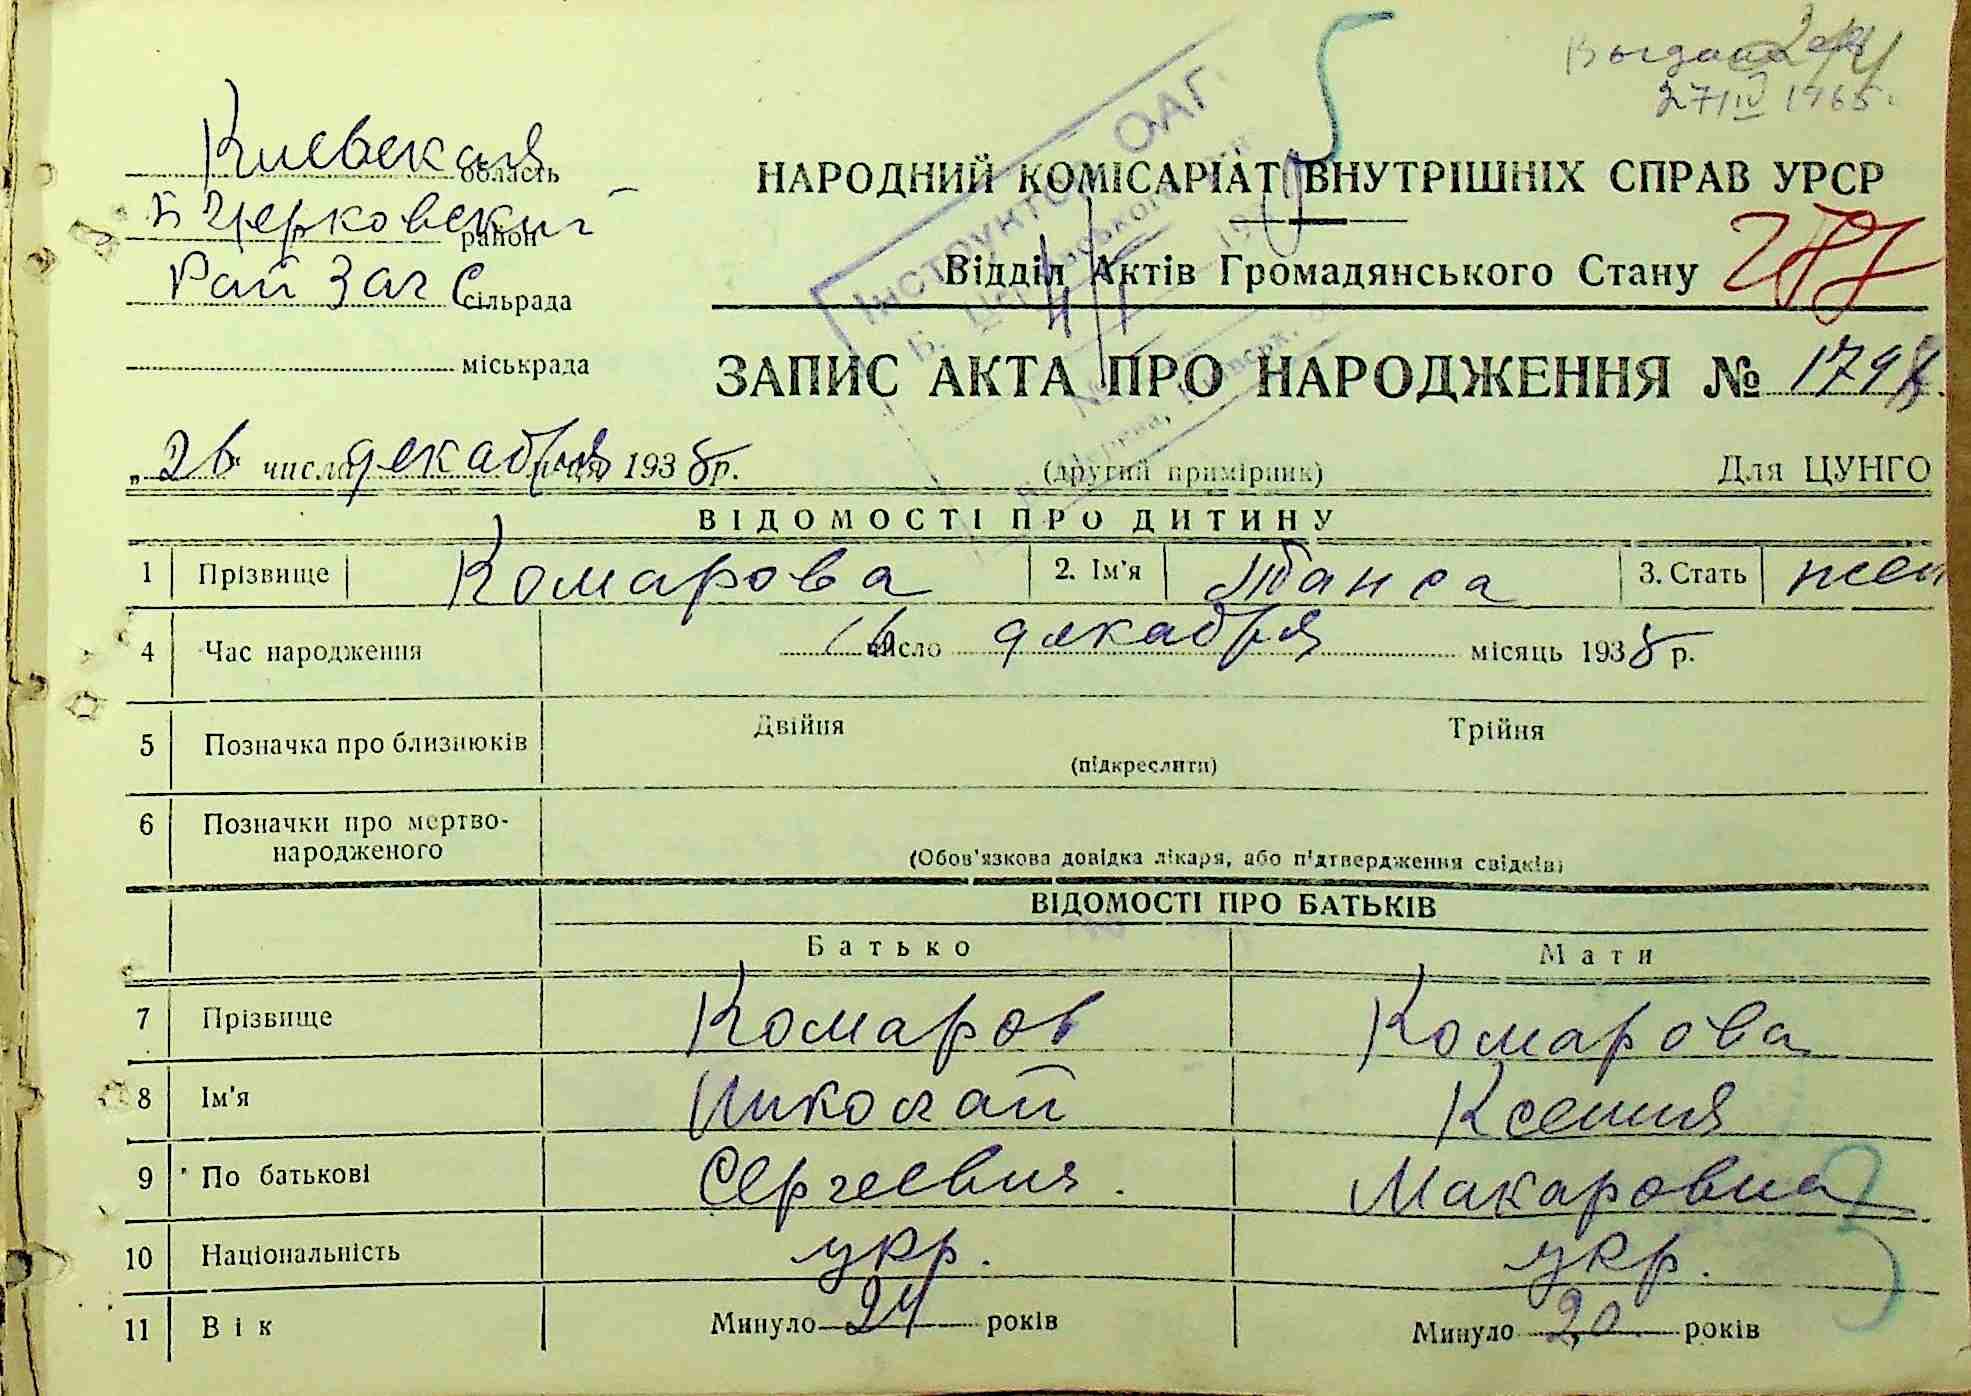 27/IV 1965.
Киевская область
Б Церковский район
НАРОДНИЙ КОМІСАРІАТ ВНУТРІШНІХ СПРАВ УРСР
Рай Загс сільрада
Відділ Актів Громадянського Стану 277
міськрада
ЗАПИС АКТА ПРО НАРОДЖЕННЯ №
„26“ числа декабря місяця 1938 р. (другий примірник) Для ЦУНГО
Інструктор ОАГ
ВІДОМОСТІ ПРО ДИТИНУ
1 Прізвище Комарова 2. Ім'я 3. Стать жен
4 Час народження число декабря місяць 1938 р.
5 Позначка про близнюків Двійня Трійня
(підкреслити)
6 Позначки про мертво-
народженого
(Обов'язкова довідка лікаря, або підтвердження свідків)
ВІДОМОСТІ ПРО БАТЬКІВ
Батько Мати
7 Прізвище Комаров Комарова
8 Ім'я Николай Ксения
9 По батькові Сергеевич. Макаровна
10 Національність укр. укр.
11 Вік Минуло 24 років Минуло 20 років